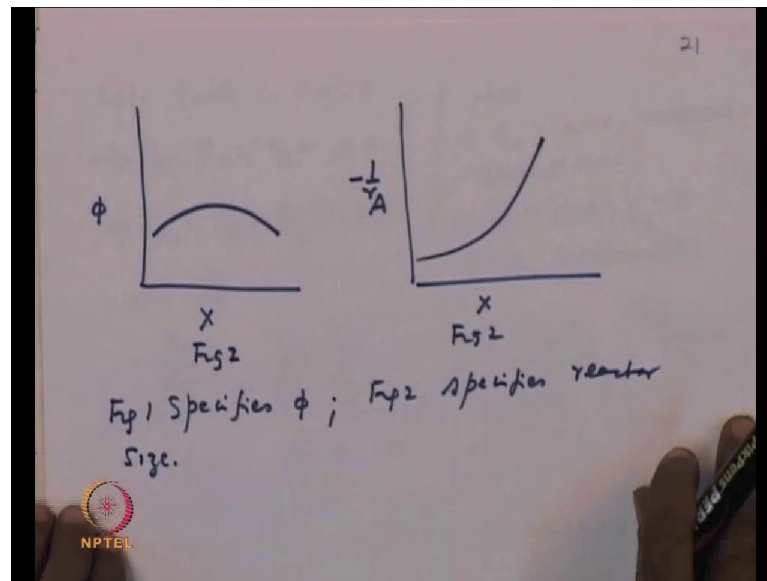 21
φ
X
Fig 2
-1/rA
X
Fig 2
Fig 1 Specifies φ ; Fig 2 specifies reactor
size.
NPTEL